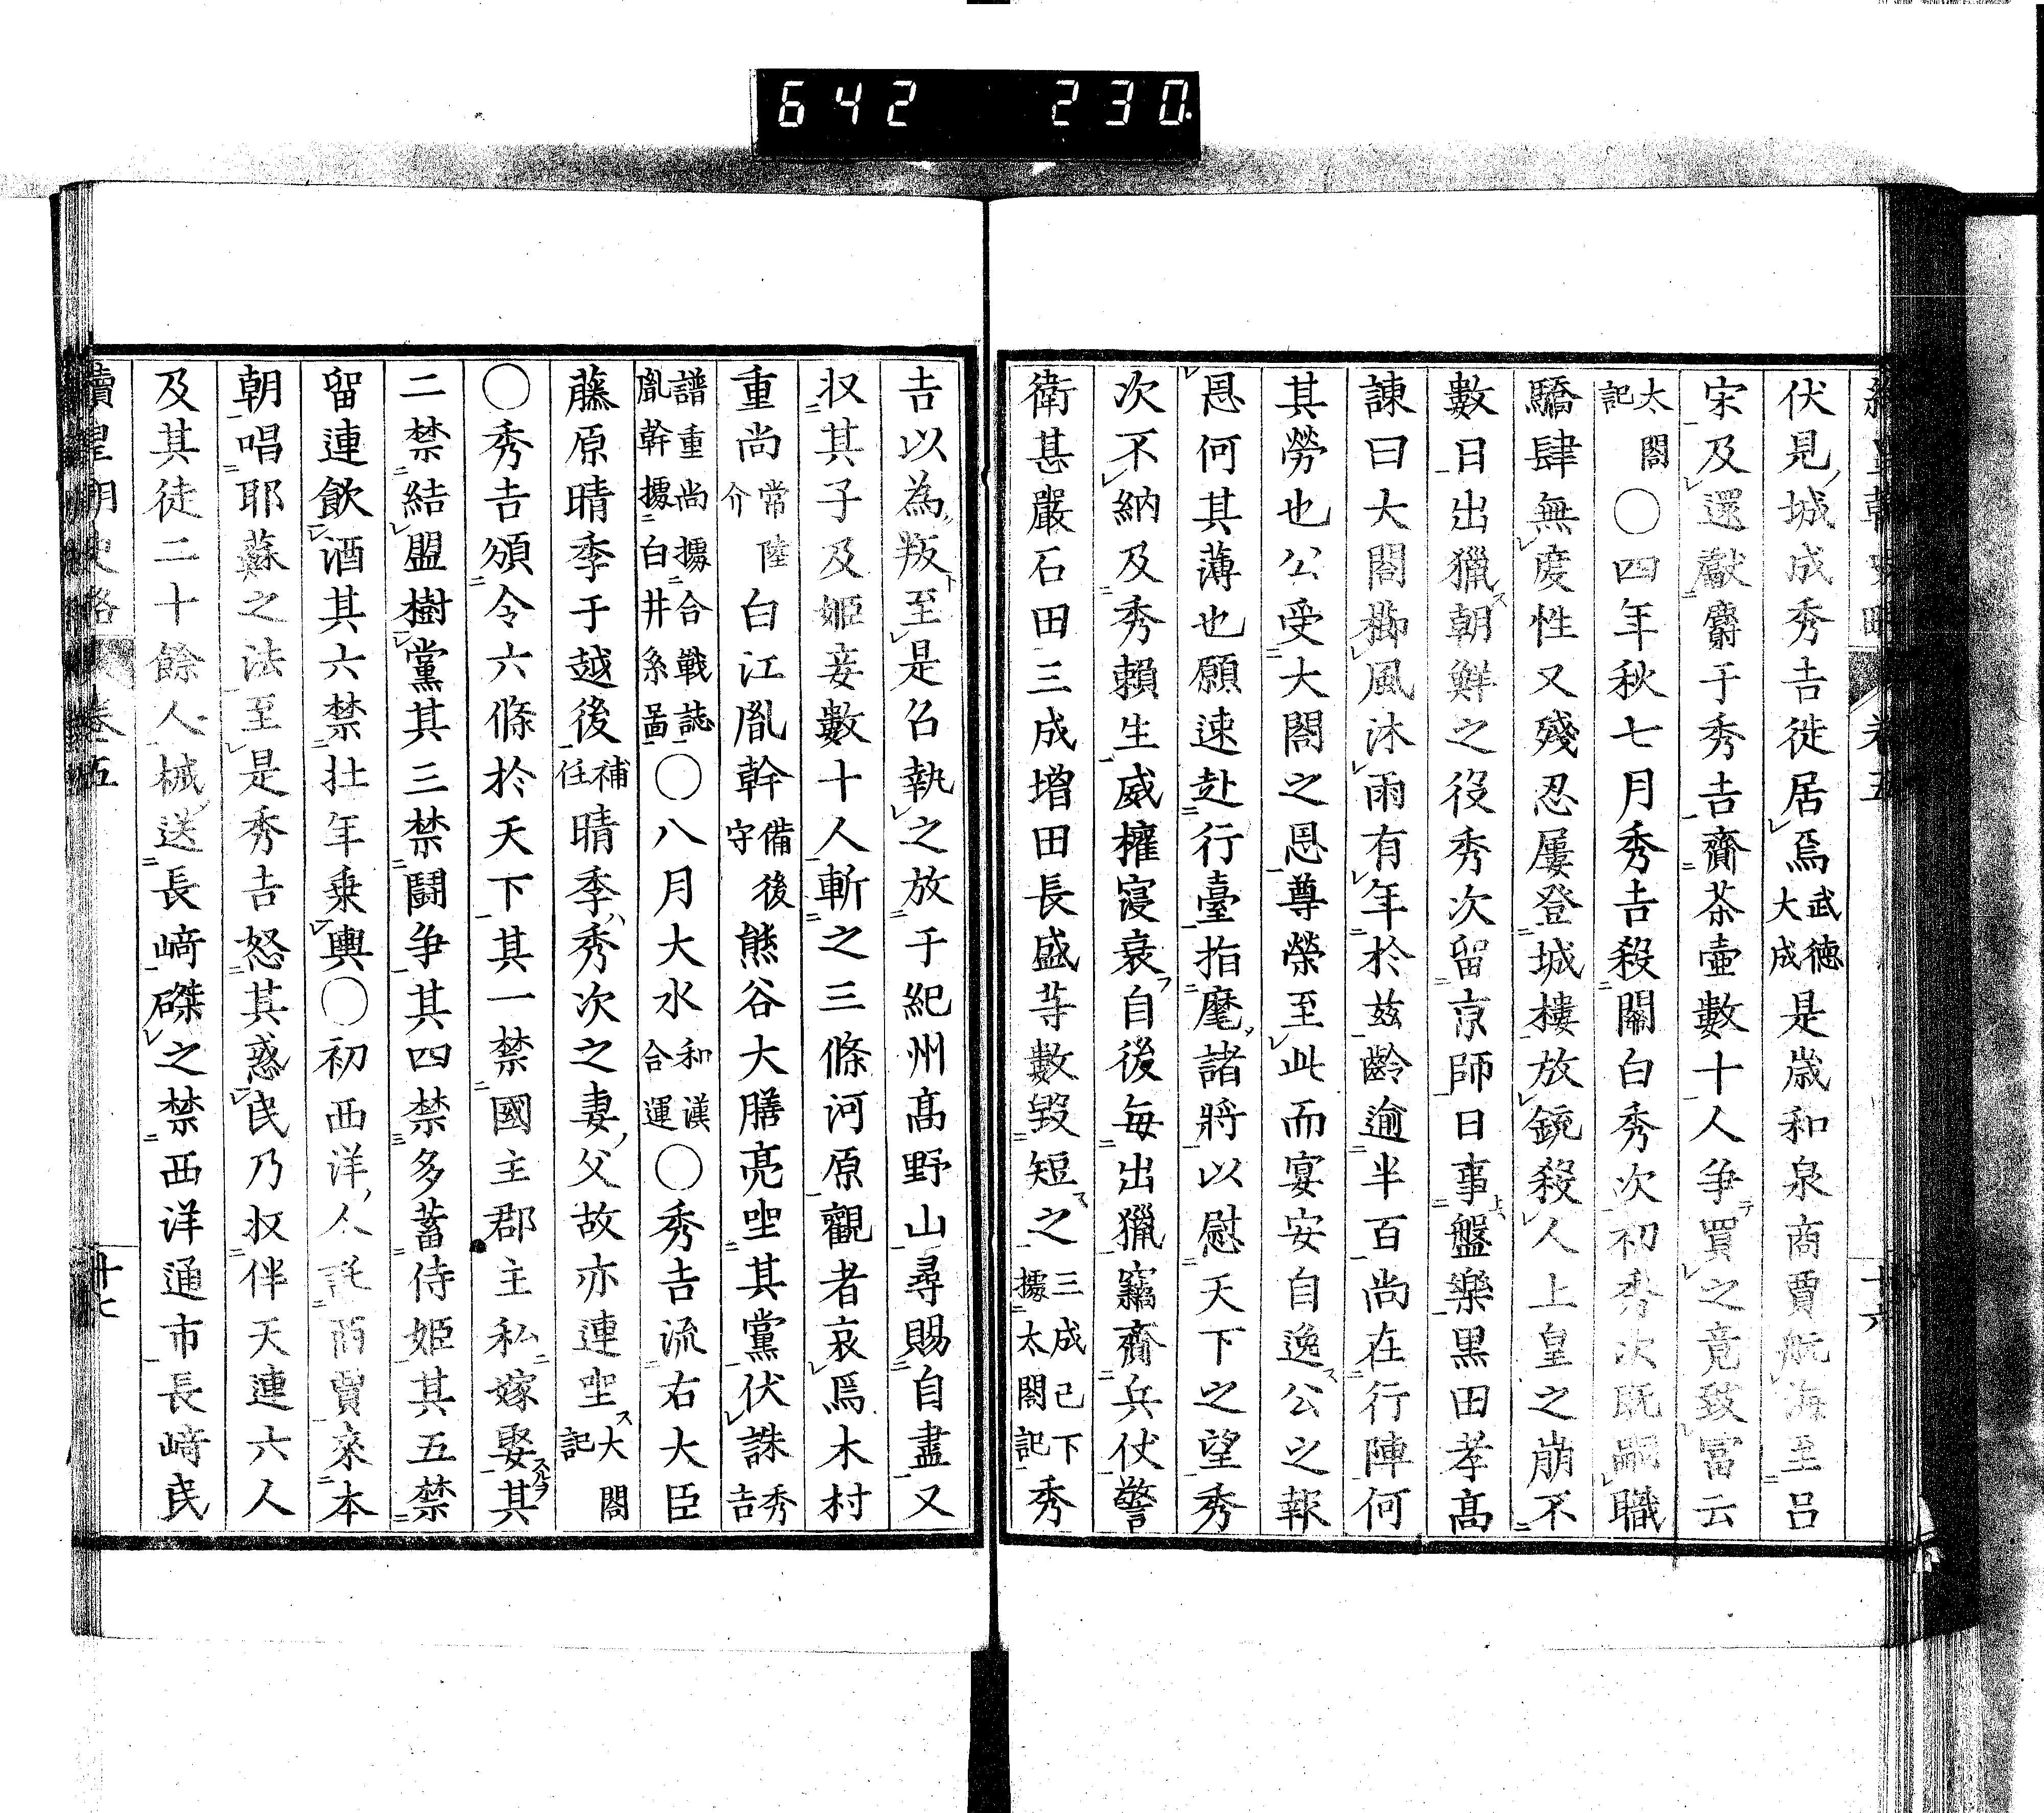 642 230
伏見城成秀吉徙居焉武德大成是歲和泉商賈航海至呂
宋及還獻麝于秀吉齎茶壷數十人爭買之竟致冨云
太閤記〇四年秋七月秀吉殺關白秀次初秀次既嗣職
驕肆無度性又殘忍屢登城樓放銃殺人上皇之崩不
數日出獵朝鮮之役秀次留京師日事盤樂黒田孝髙
諫曰大閤櫛風沐雨有年於兹齡逾半百尚在行陣何
其勞也公受大閤之恩尊榮至此而宴安自逸公之報
恩何其薄也願速赴行臺指麾諸將以慰天下之望秀
次不納及秀賴生威權寖衰自後毎出獵竊齎兵仗警
衛甚嚴石田三成増田長盛等數毀短之三成已下據太閤記秀
吉以為叛至是召執之放于紀州髙野山尋賜自盡又
収其子及姬妾數十人斬之三條河原觀者哀焉木村
重尚常陸介白江胤幹備後守熊谷大膳亮坐其黨伏誅秀吉
譜重尚據合戰誌胤幹據白井系啚〇八月大水和漢合運〇秀吉流右大臣
藤原晴季于越後補任晴季秀次之妻父故亦連坐大閤記
〇秀吉頒令六條於天下其一禁國主郡主私嫁娶其
二禁結盟樹黨其三禁鬪争其四禁多蓄侍姬其五禁
留連飲酒其六禁壯年乗輿〇初西洋人託商賈來本
朝唱耶蘇之法至是秀吉怒其惑民乃収伴天連六人
及其徒二十餘人械送長﨑磔之禁西洋通市長﨑民
續皇朝史略卷五 十七